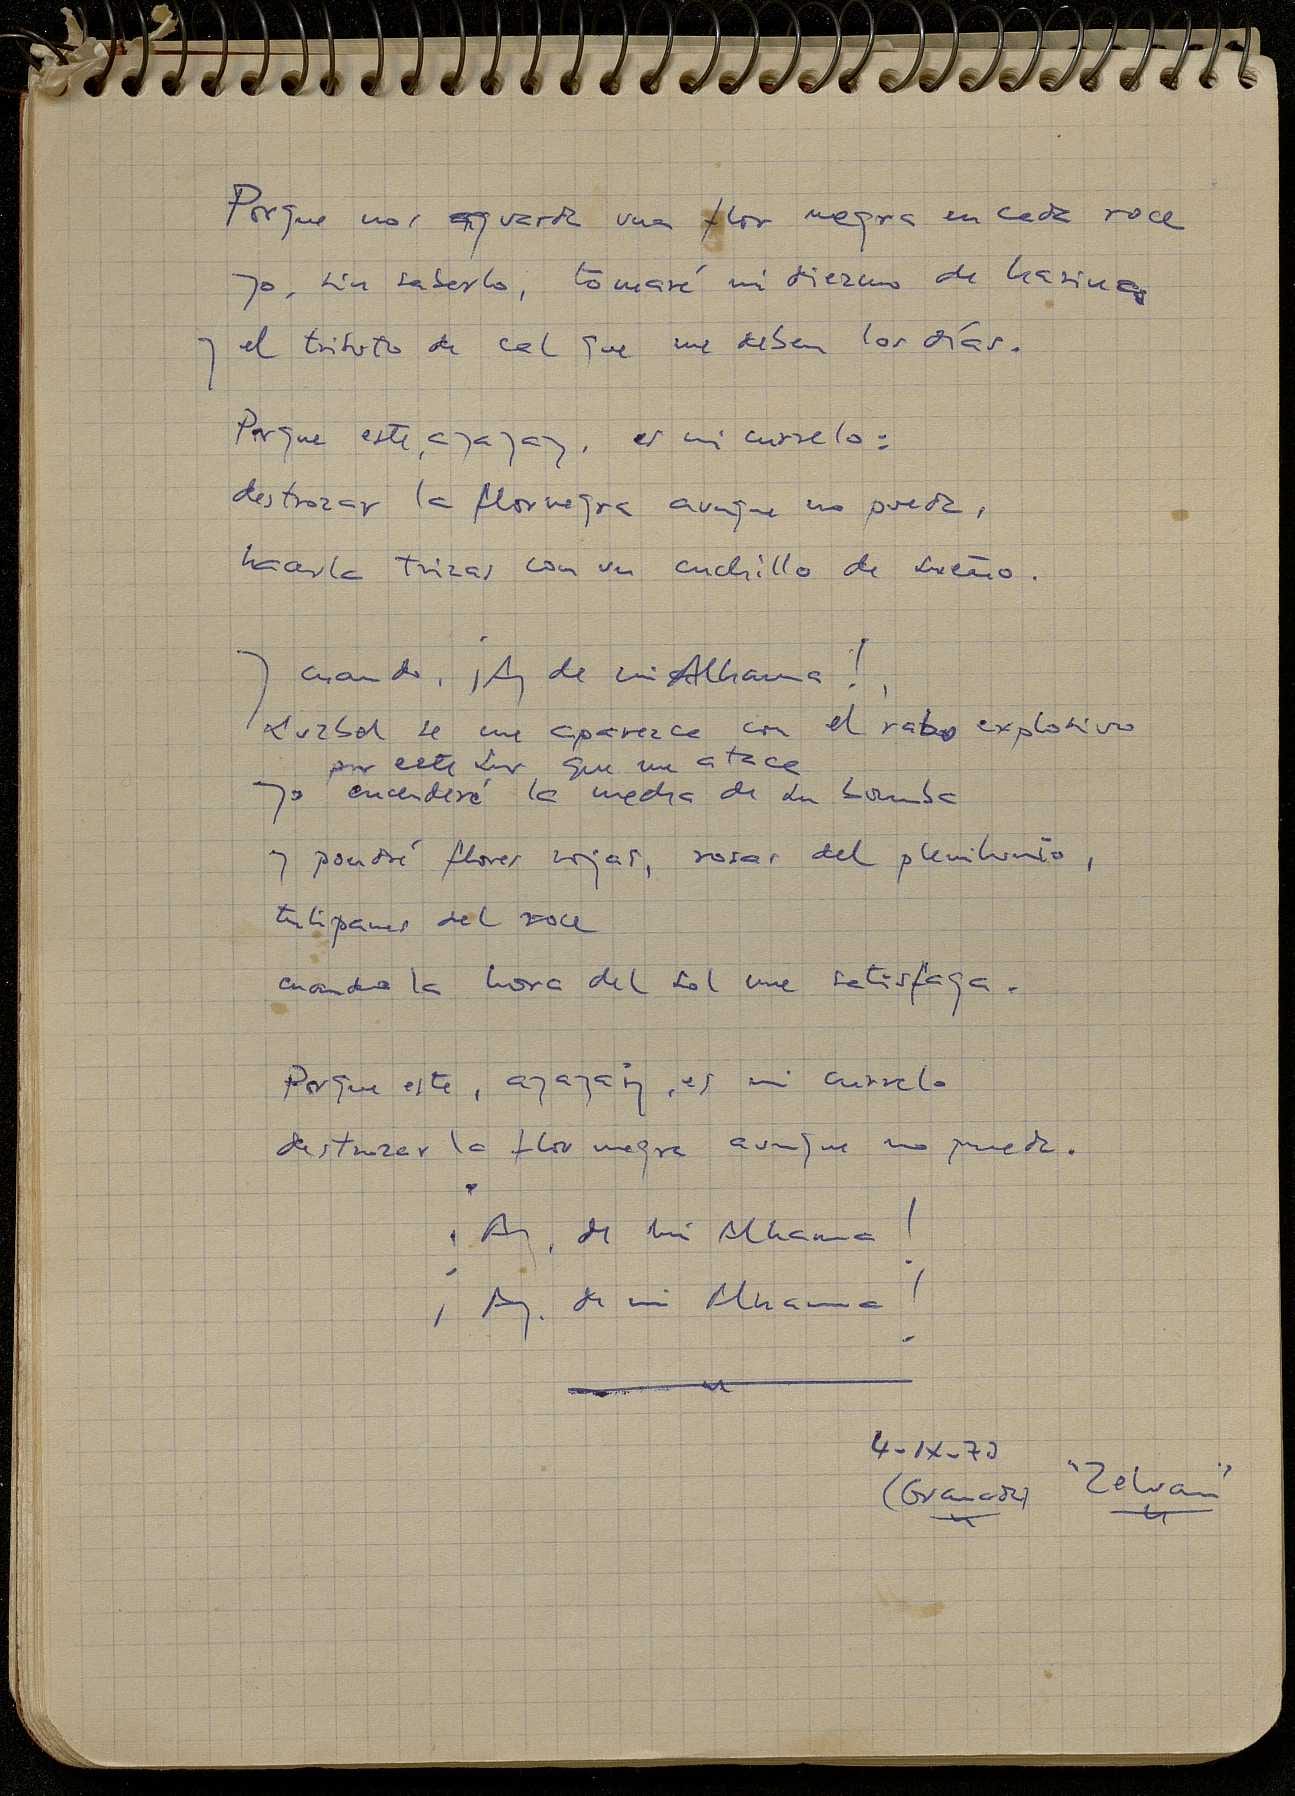 Porque nos aguarda una flor negra en cada roce
yo, sin saberlo, tomaré mi diezmo de harinas
y el tributo de cal que me deben los días.
Porque este, ayayay, es mi currelo:
destrozar la flor negra aunque no pueda,
hacerla trizas con un cuchillo de sueño.
Y cuando, ¡Ay de mi Alhama!,
Luzbel se me aparezca con el rabo explosivo
por este sur que me ataca
yo encenderé la mecha de su bomba
y pondré flores rojas, rosas del plenilunio,
tulipanes del roce
cuando la hora del sol me satisfaga.
Porque este, ayayay, es mi currelo
destrozar la flor negra aunque no pueda.
¡Ay, de mi Alhama!
¡Ay, de mi Alhama!
4-IX-72
(Granada) "Zelvan"